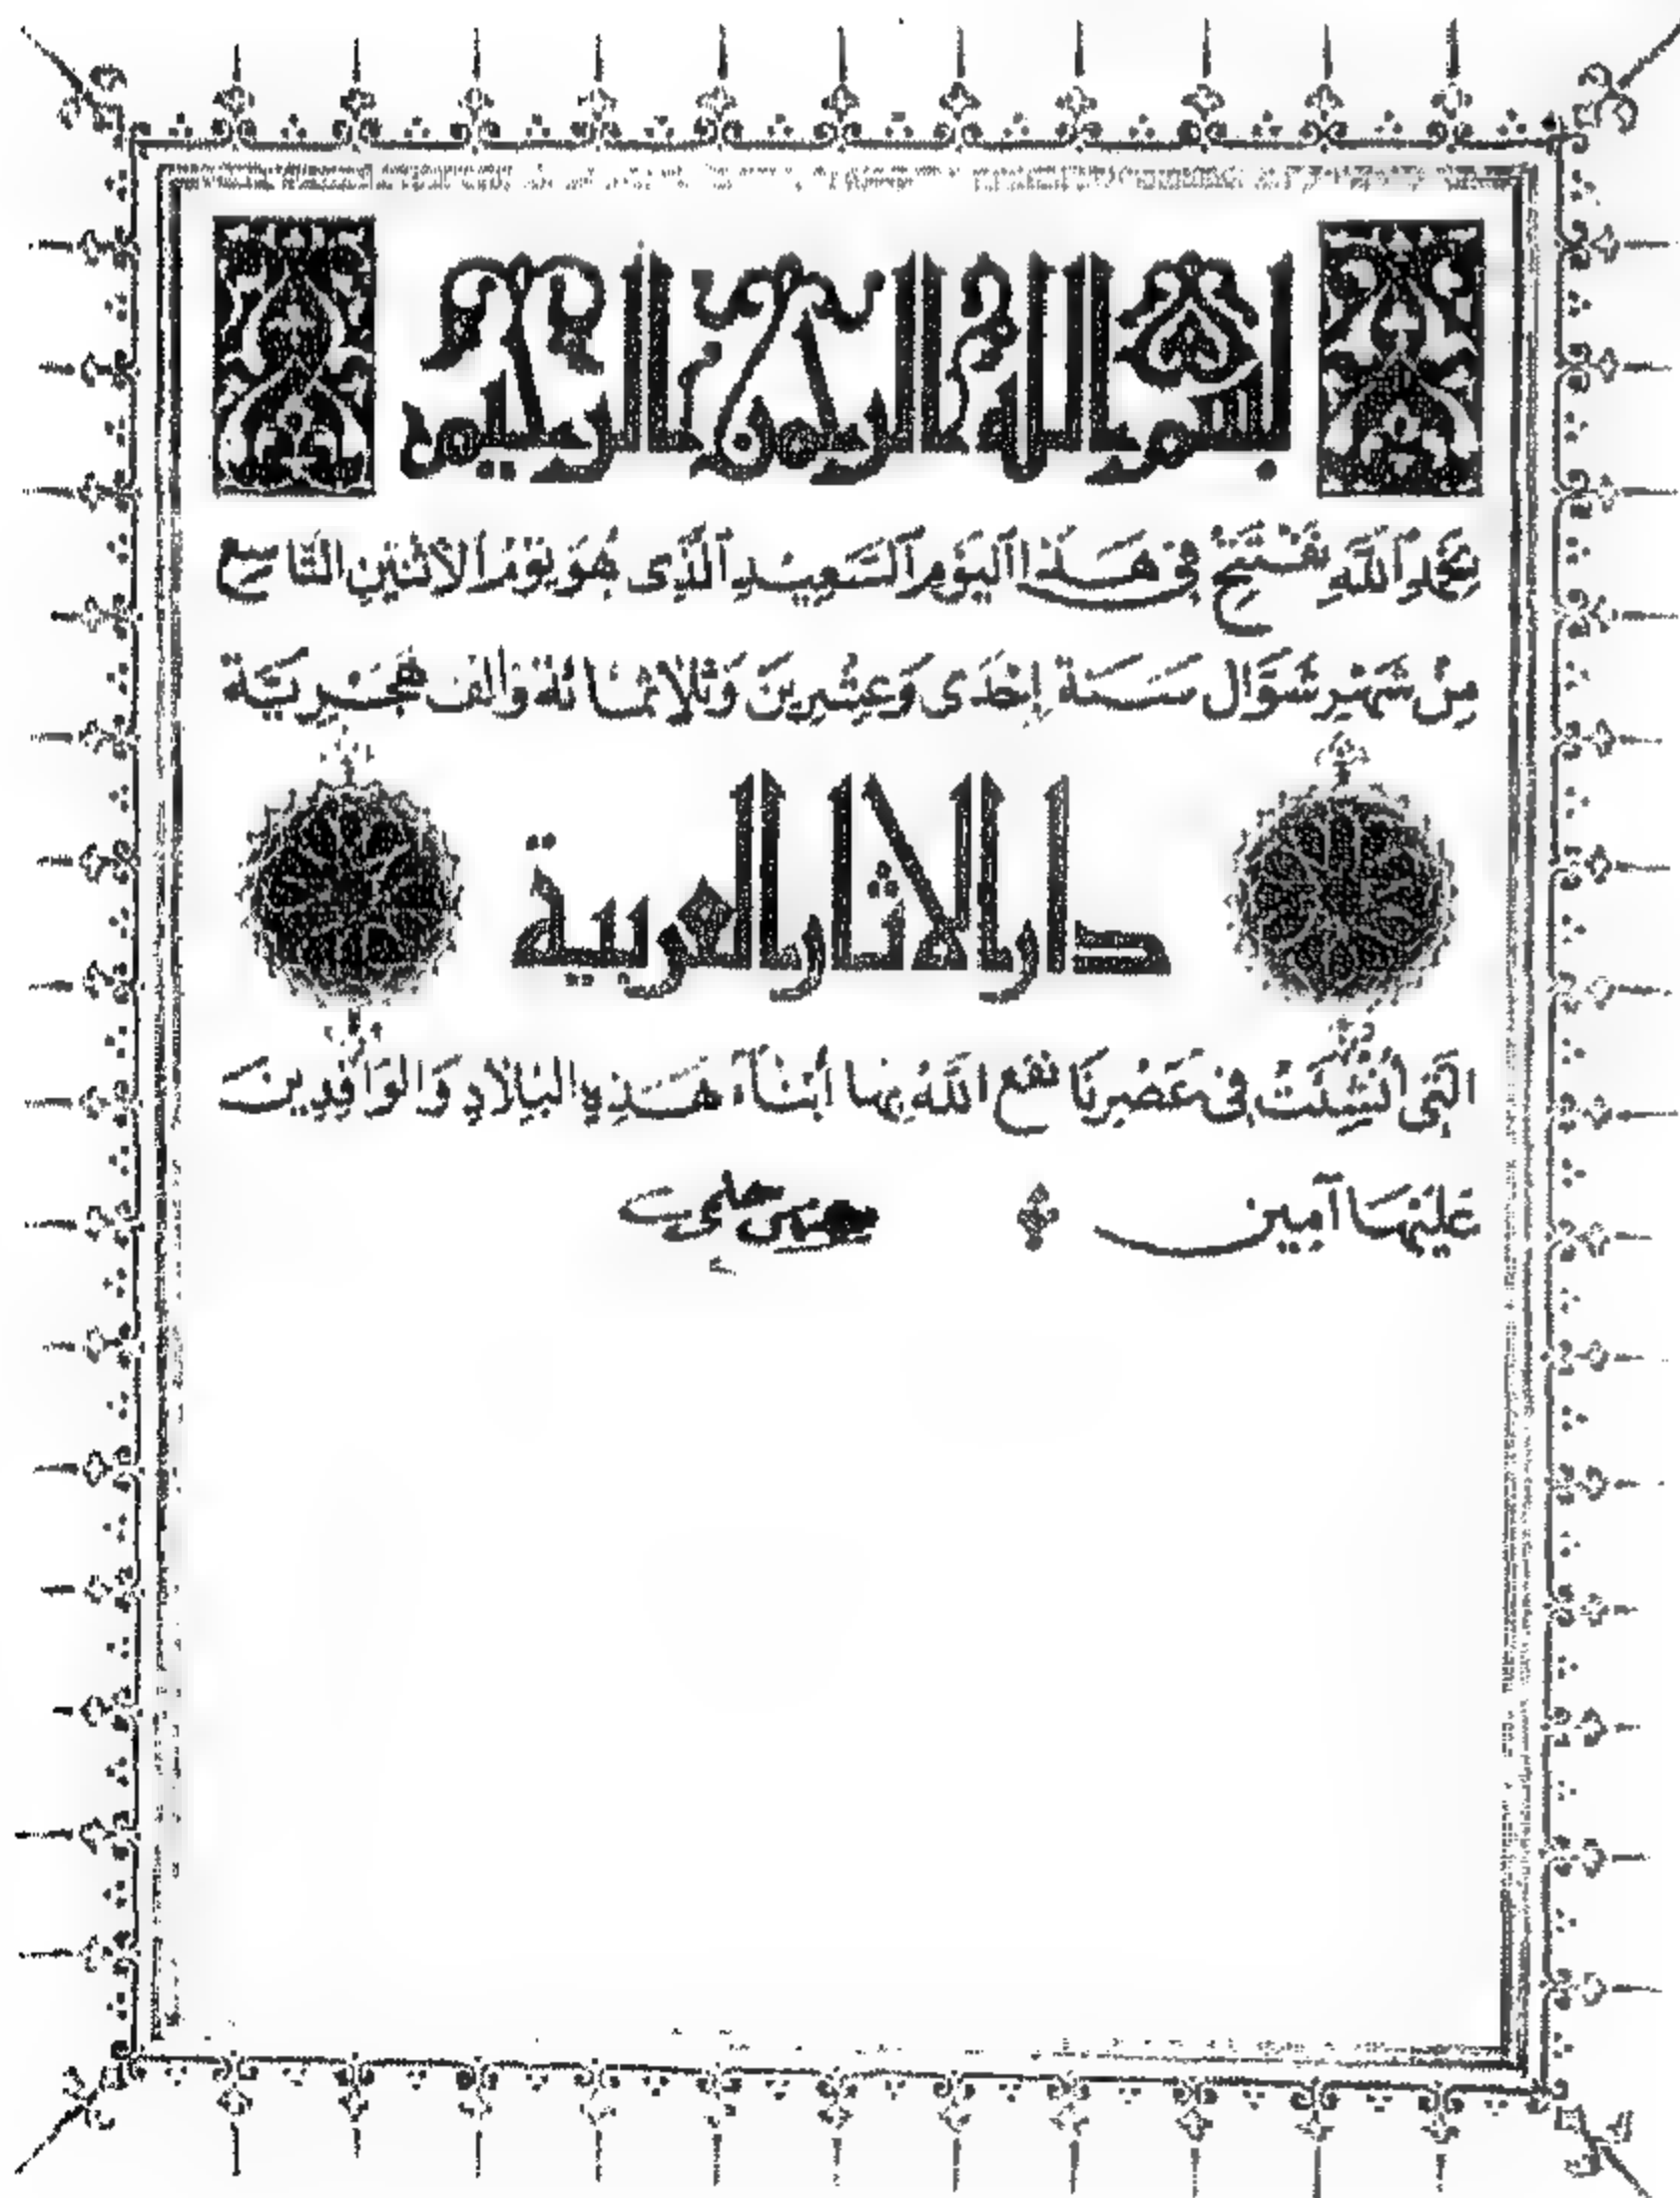 بسم الله الرحمن الرحيم
بِحَمْدِ اللهِ نَفْتَتِحُ فِى هَذَا اليَوْمِ السَّعِيدِ الَّذِى هُوَ يَوْمُ الاثْنَيْنِ التَّاسِع
مِنْ شَهْرِ شَوَّال سَنَة إِحْدَى وَعِشْرِينَ وَثَلاثمَائَة وَأَلْف هِجَرِيَّة
دار الاثار العربية
الَّتِى أُنْشِئَتْ فِى عَصْرِنَا نَفَع اللهُ بِهَا أَبْنَاءَ هَذِهِ البِلَادِ وَالوَافِدِينَ
عَلَيْهَا آمِين
عباس حلمى